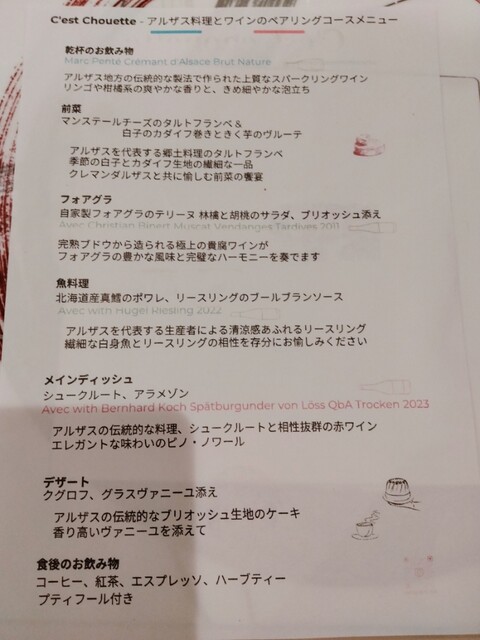 C'est Chouette - アルザス料理とワインのペアリングコースメニュー
乾杯のお飲み物
Marc Penté Crémant d'Alsace Brut Nature
アルザス地方の伝統的な製法で作られた上質なスパークリングワイン
リンゴや柑橘系の爽やかな香りと、きめ細やかな泡立ち
前菜
マンステールチーズのタルトフランベ &
白子のカダイフ巻きときく芋のヴルーテ
アルザスを代表する郷土料理のタルトフランベ
季節の白子とカダイフ生地の繊細な一品
クレマンダルザスと共に愉しむ前菜の饗宴
フォアグラ
自家製フォアグラのテリーヌ 林檎と胡桃のサラダ、ブリオッシュ添え
Avec Christian Binert Muscat Vendanges Tardives 2011
完熟ブドウから造られる極上の貴腐ワインが
フォアグラの豊かな風味と完璧なハーモニーを奏でます
魚料理
北海道産真鱈のポワレ、リースリングのブールブランソース
Avec with Hugel Riesling 2022
アルザスを代表する生産者による清涼感あふれるリースリング
繊細な白身魚とリースリングの相性を存分にお愉しみください
メインディッシュ
シュークルート、アラメゾン
Avec with Bernhard Koch Spätburgunder von Löss QbA Trocken 2023
アルザスの伝統的な料理、シュークルートと相性抜群の赤ワイン
エレガントな味わいのピノ・ノワール
デザート
クグロフ、グラスヴァニーユ添え
アルザスの伝統的なブリオッシュ生地のケーキ
香り高いヴァニーユを添えて
食後のお飲み物
コーヒー、紅茶、エスプレッソ、ハーブティー
プティフール付き